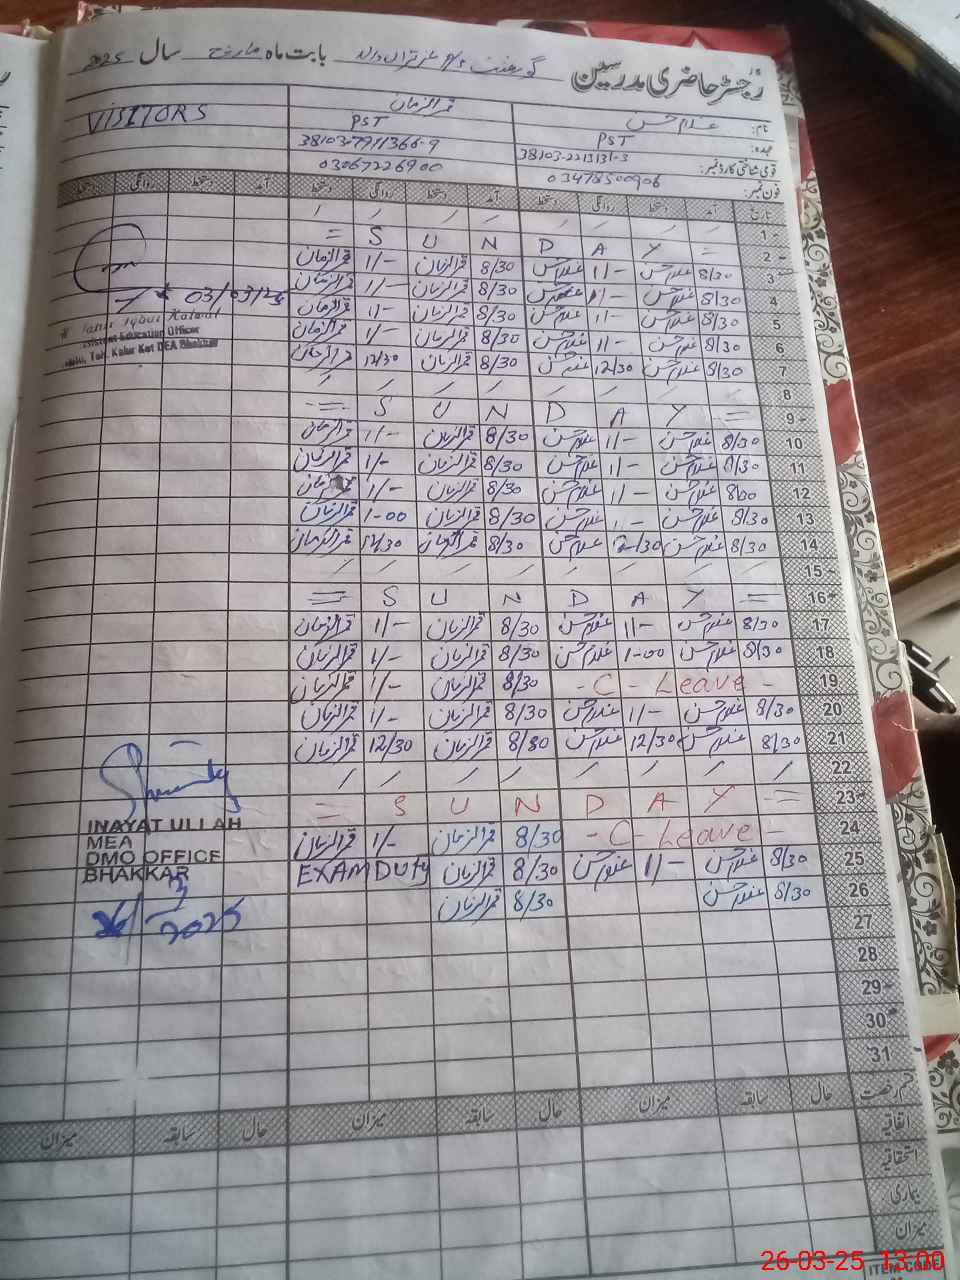 رجسٹر حاضری مدرسین گورنمنٹ بابت ماہ مارچ سال 2025
نام: غلام حسن قمرالزمان VISITORS
عہدہ: PST PST
قومی شناختی کارڈ نمبر: 38103-2213131-3 38103-7911366-9
فون نمبر: 03478500906 03067226900
تاریخ آمد دستخط روانگی دستخط آمد دستخط روانگی دستخط آمد دستخط روانگی دستخط
1
2 = S U N D A Y =
3 8/30 غلام حسن 1/- غلام حسن 8/30 قمرالزمان 1/- قمرالزمان
4 8/30 غلام حسن 1/- غلام حسن 8/30 قمرالزمان 1/- قمرالزمان
03/03/25
5 8/30 غلام حسن 1/- غلام حسن 8/30 قمرالزمان 1/- قمرالزمان
6 8/30 غلام حسن 1/- غلام حسن 8/30 قمرالزمان 1/- قمرالزمان
Assistant Education Officer
7 8/30 غلام حسن 12/30 غلام حسن 8/30 قمرالزمان 12/30 قمرالزمان
Kalur Kot DEA Bhakkar
8
9 = S U N D A Y =
10 8/30 غلام حسن 1/- غلام حسن 8/30 قمرالزمان 1/- قمرالزمان
11 8/30 غلام حسن 1/- غلام حسن 8/30 قمرالزمان 1/- قمرالزمان
12 غلام حسن 1/- غلام حسن 8/30 قمرالزمان 1/-
13 8/30 غلام حسن غلام حسن 8/30 قمرالزمان 1-00 قمرالزمان
14 8/30 غلام حسن 12/30 غلام حسن 8/30 قمرالزمان 12/30 قمرالزمان
15
16 = S U N D A Y =
17 8/30 غلام حسن 1/- غلام حسن 8/30 قمرالزمان 1/- قمرالزمان
18 8/30 غلام حسن 1-00 غلام حسن 8/30 قمرالزمان 1/- قمرالزمان
19 - C - Leave - 8/30 قمرالزمان 1/- قمرالزمان
20 8/30 غلام حسن 1/- غلام حسن 8/30 قمرالزمان 1/- قمرالزمان
21 8/30 غلام حسن 12/30 غلام حسن 8/30 قمرالزمان 12/30 قمرالزمان
22
23 = S U N D A Y =
24 - C - Leave - 8/30 قمرالزمان 1/- قمرالزمان
25 8/30 غلام حسن 1/- غلام حسن 8/30 قمرالزمان EXAM Duty
26 8/30 غلام حسن 8/30 قمرالزمان
INAYAT ULLAH
MEA
DMO OFFICE
BHAKKAR
26/3/2025
27
28
29
30
31
قسم رخصت حال سابقہ میزان حال سابقہ میزان حال سابقہ میزان
اتفاقیہ
استحقاقیہ
بیماری
میزان
ITEM CODE
26-03-25 13:00